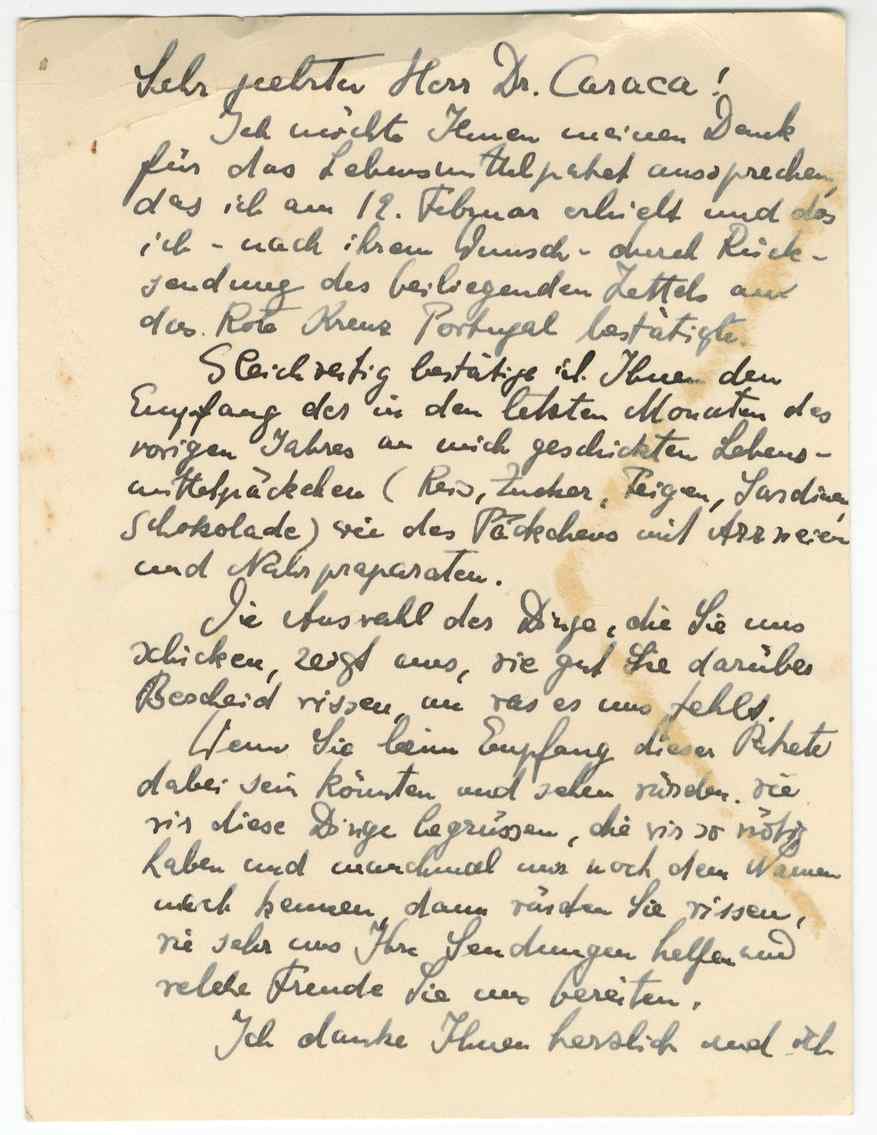 Sehr geehrter Herr Dr. Caraca!
Ich möchte Ihnen meinen Dank
für das Lebensmittelpaket aussprechen,
das ich am 12. Februar erhielt und das
ich - nach ihrem Wunsch - durch Rück-
sendung des beiliegenden Zettels an
das Rote Kreuz Portugal bestätigte.
Gleichzeitig bestätige ich Ihnen den
Empfang der in den letzten Monaten des
vorigen Jahres an mich geschickten Lebens-
mittelpäckchen (Reis, Zucker, Feigen, Sardinen,
Schokolade) wie des Päckchens mit Arzneien
und Nährpräparaten.
Die Auswahl der Dinge, die Sie uns
schicken, zeigt uns, wie gut Sie darüber
Bescheid wissen, an was es uns fehlt.
Wenn Sie beim Empfang dieser Pakete
dabei sein könnten und sehen würden, wie
wir diese Dinge begrüssen, die wir so nötig
haben und manchmal nur noch dem Namen
nach kennen, dann würden Sie wissen,
wie sehr uns Ihre Sendungen helfen und
welche Freude Sie uns bereiten.
Ich danke Ihnen herzlich und ich